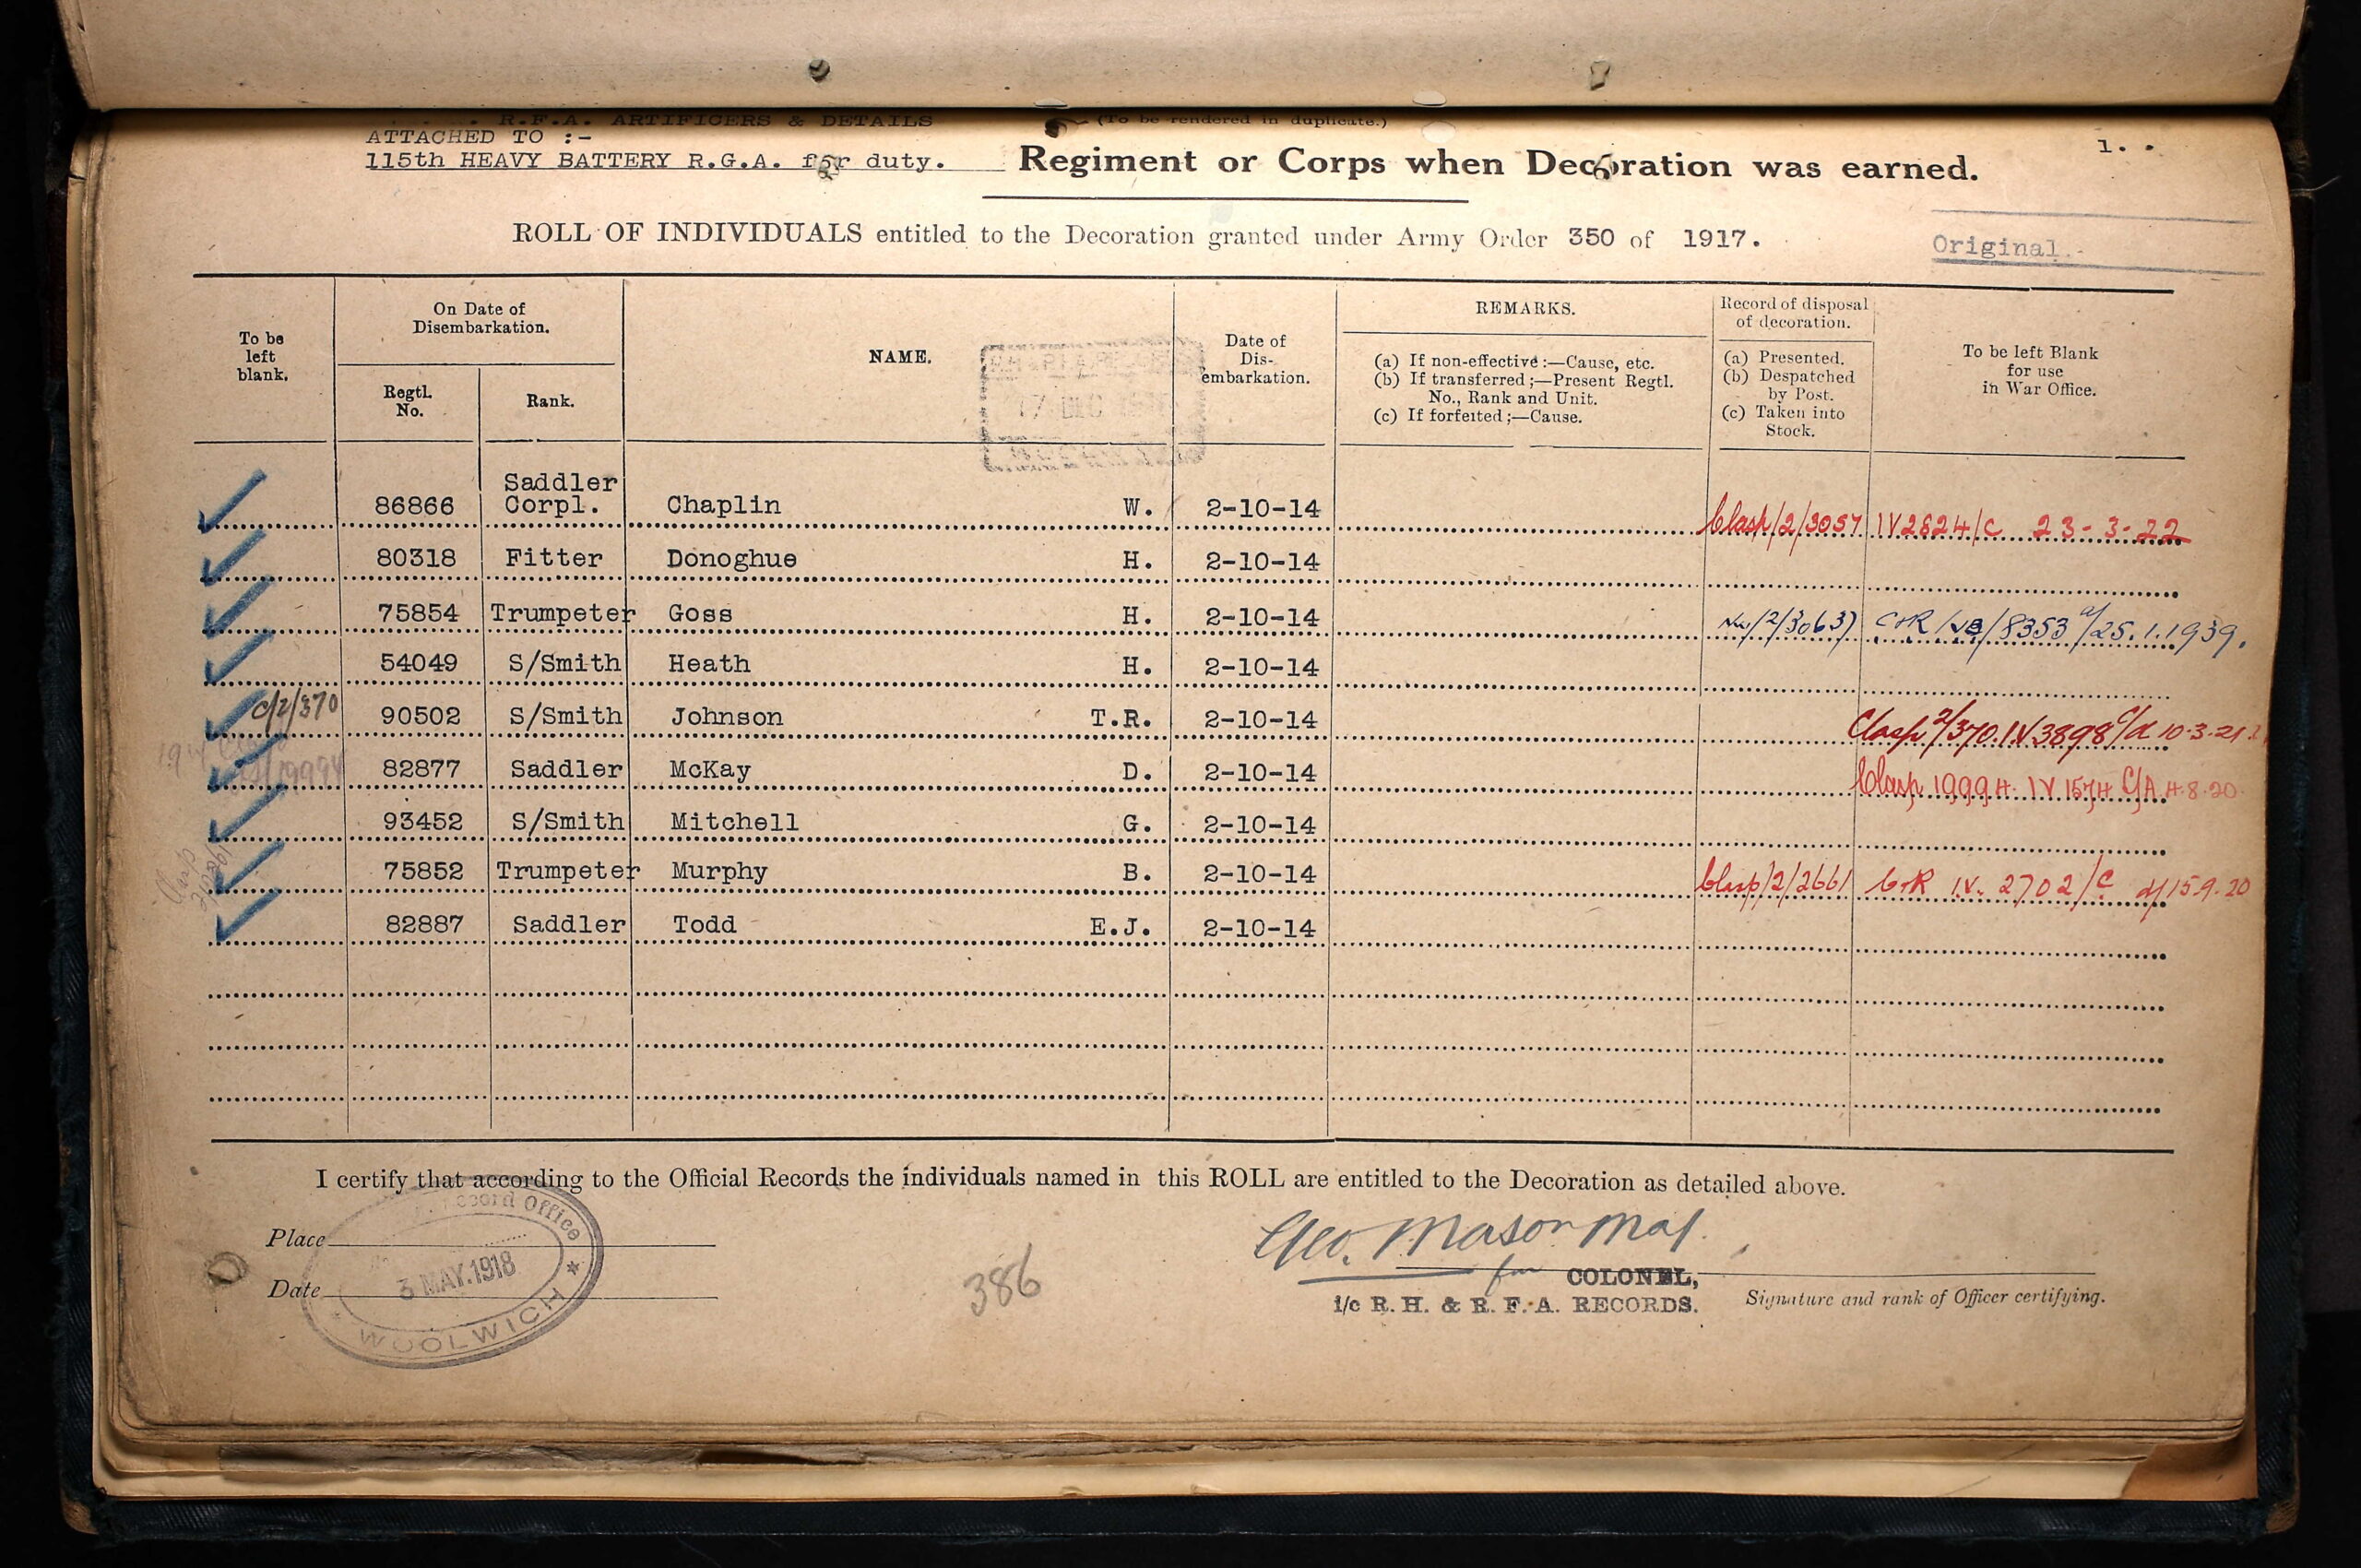 R.F.A. ARTIFICERS & DETAILS
(To be rendered in duplicate.)
ATTACHED TO :-
1.
115th HEAVY BATTERY R.G.A. for duty.
Regiment or Corps when Decoration was earned.
ROLL OF INDIVIDUALS entitled to the Decoration granted under Army Order 350 of 1917.
Original.
To be left blank.
On Date of Disembarkation.
Regtl. No.
Rank.
NAME.
17 DEC
Date of Dis-embarkation.
REMARKS.
(a) If non-effective:—Cause, etc.
(b) If transferred;—Present Regtl. No., Rank and Unit.
(c) If forfeited;—Cause.
Record of disposal of decoration.
(a) Presented.
(b) Despatched by Post.
(c) Taken into Stock.
To be left Blank for use in War Office.
86866 Saddler Corpl. Chaplin W. 2-10-14 Clasp/2/3057 IV2824/C 23-3-22
80318 Fitter Donoghue H. 2-10-14
75854 Trumpeter Goss H. 2-10-14 /25.1.1939.
54049 S/Smith Heath H. 2-10-14
C/2/370 90502 S/Smith Johnson T.R. 2-10-14 Clasp 2/370. IV3898 10-3-21
82877 Saddler McKay D. 2-10-14 Clasp 19994 IV 1574 C/A 4-8-20
93452 S/Smith Mitchell G. 2-10-14
75852 Trumpeter Murphy B. 2-10-14 Clasp/2/2661 C+R IV. 2702/C d/15-9-20
82887 Saddler Todd E.J. 2-10-14
I certify that according to the Official Records the individuals named in this ROLL are entitled to the Decoration as detailed above.
Place
Date
Record Office
3 MAY.1918
WOOLWICH
386
Geo. Mason Maj.
for COLONEL,
i/c R. H. & R. F. A. RECORDS.
Signature and rank of Officer certifying.